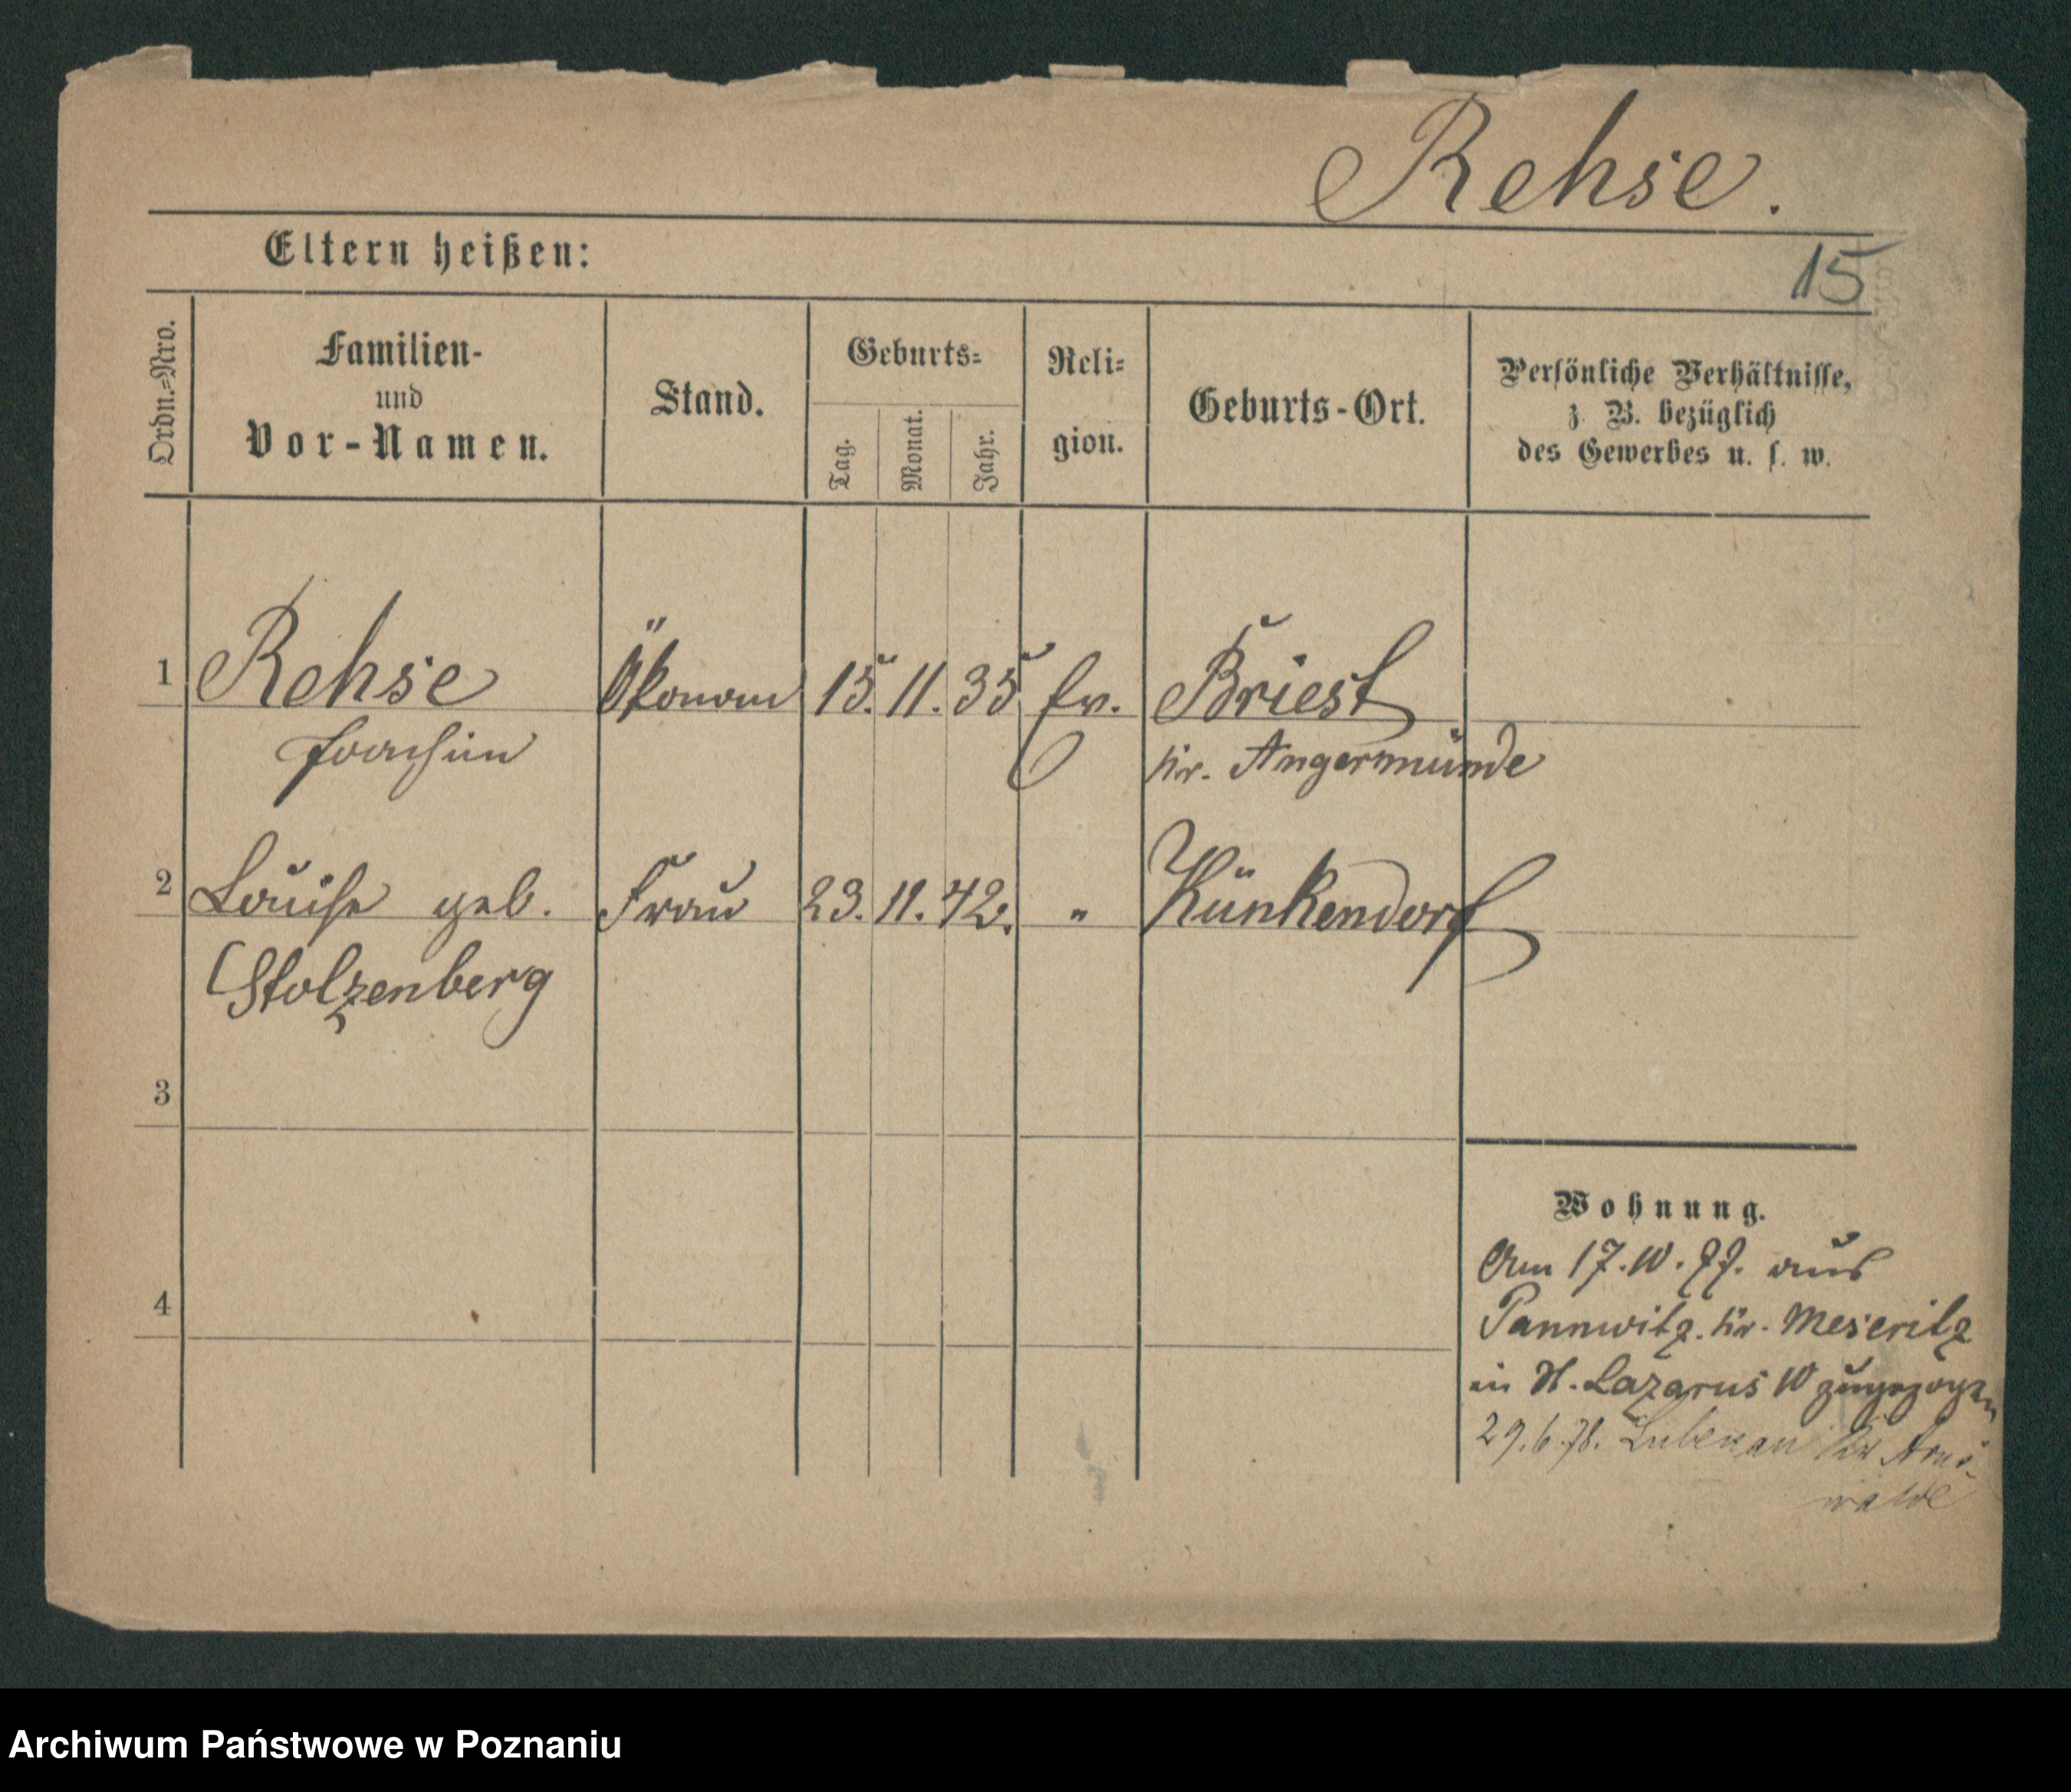 Rehse.
Eltern heißen:
15
Ordn.=Nro.
Familien-
und
Vor-Namen.
Stand.
Geburts=
Tag.
Monat.
Jahr.
Reli=
gion.
Geburts-Ort.
Persönliche Verhältnisse,
z. B. bezüglich
des Gewerbes u. s. w.
1 Rehse Ökonom 15. 11. 35 Ev. Briest
Joachim Kr. Angermünde
2 Louise geb. Frau 23. 11. 42. " Künkendorf
Stolzenberg
3
Wohnung.
4
Am 17.10.77. aus
Pannwitz. Kr. Meseritz
in St. Lazarus 10 zugezogen
29.6.78. Kr Arns-
walde
Archiwum Państwowe w Poznaniu